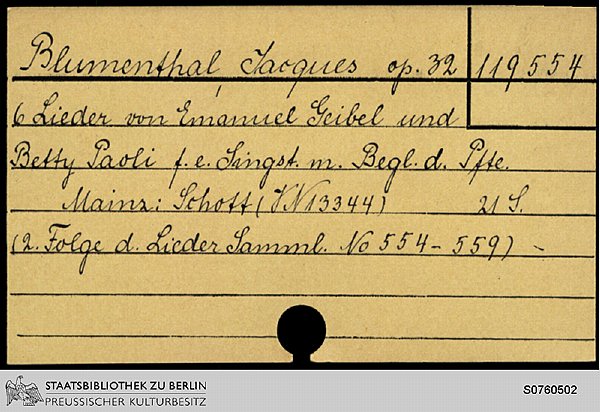 Blumenthal, Jacques op. 32 119554
6 Lieder von Emanuel Geibel und
Betty Paoli f. e. Singst. m. Begl. d. Pfte.
Mainz: Schott (VN 13344) 21 S.
(2. Folge d. Lieder Samml. No 554-559) -
STAATSBIBLIOTHEK ZU BERLIN
PREUSSISCHER KULTURBESITZ
S0760502